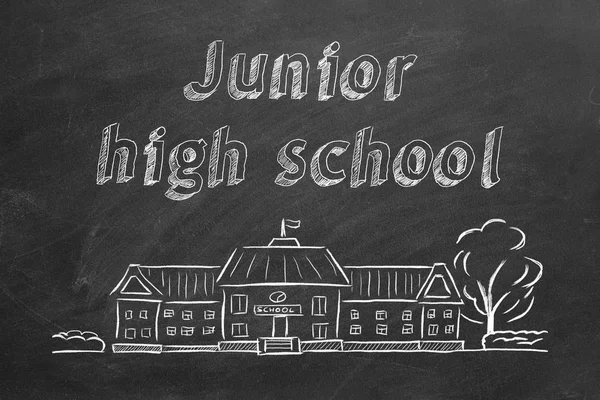 Junior
high school
SCHOOL